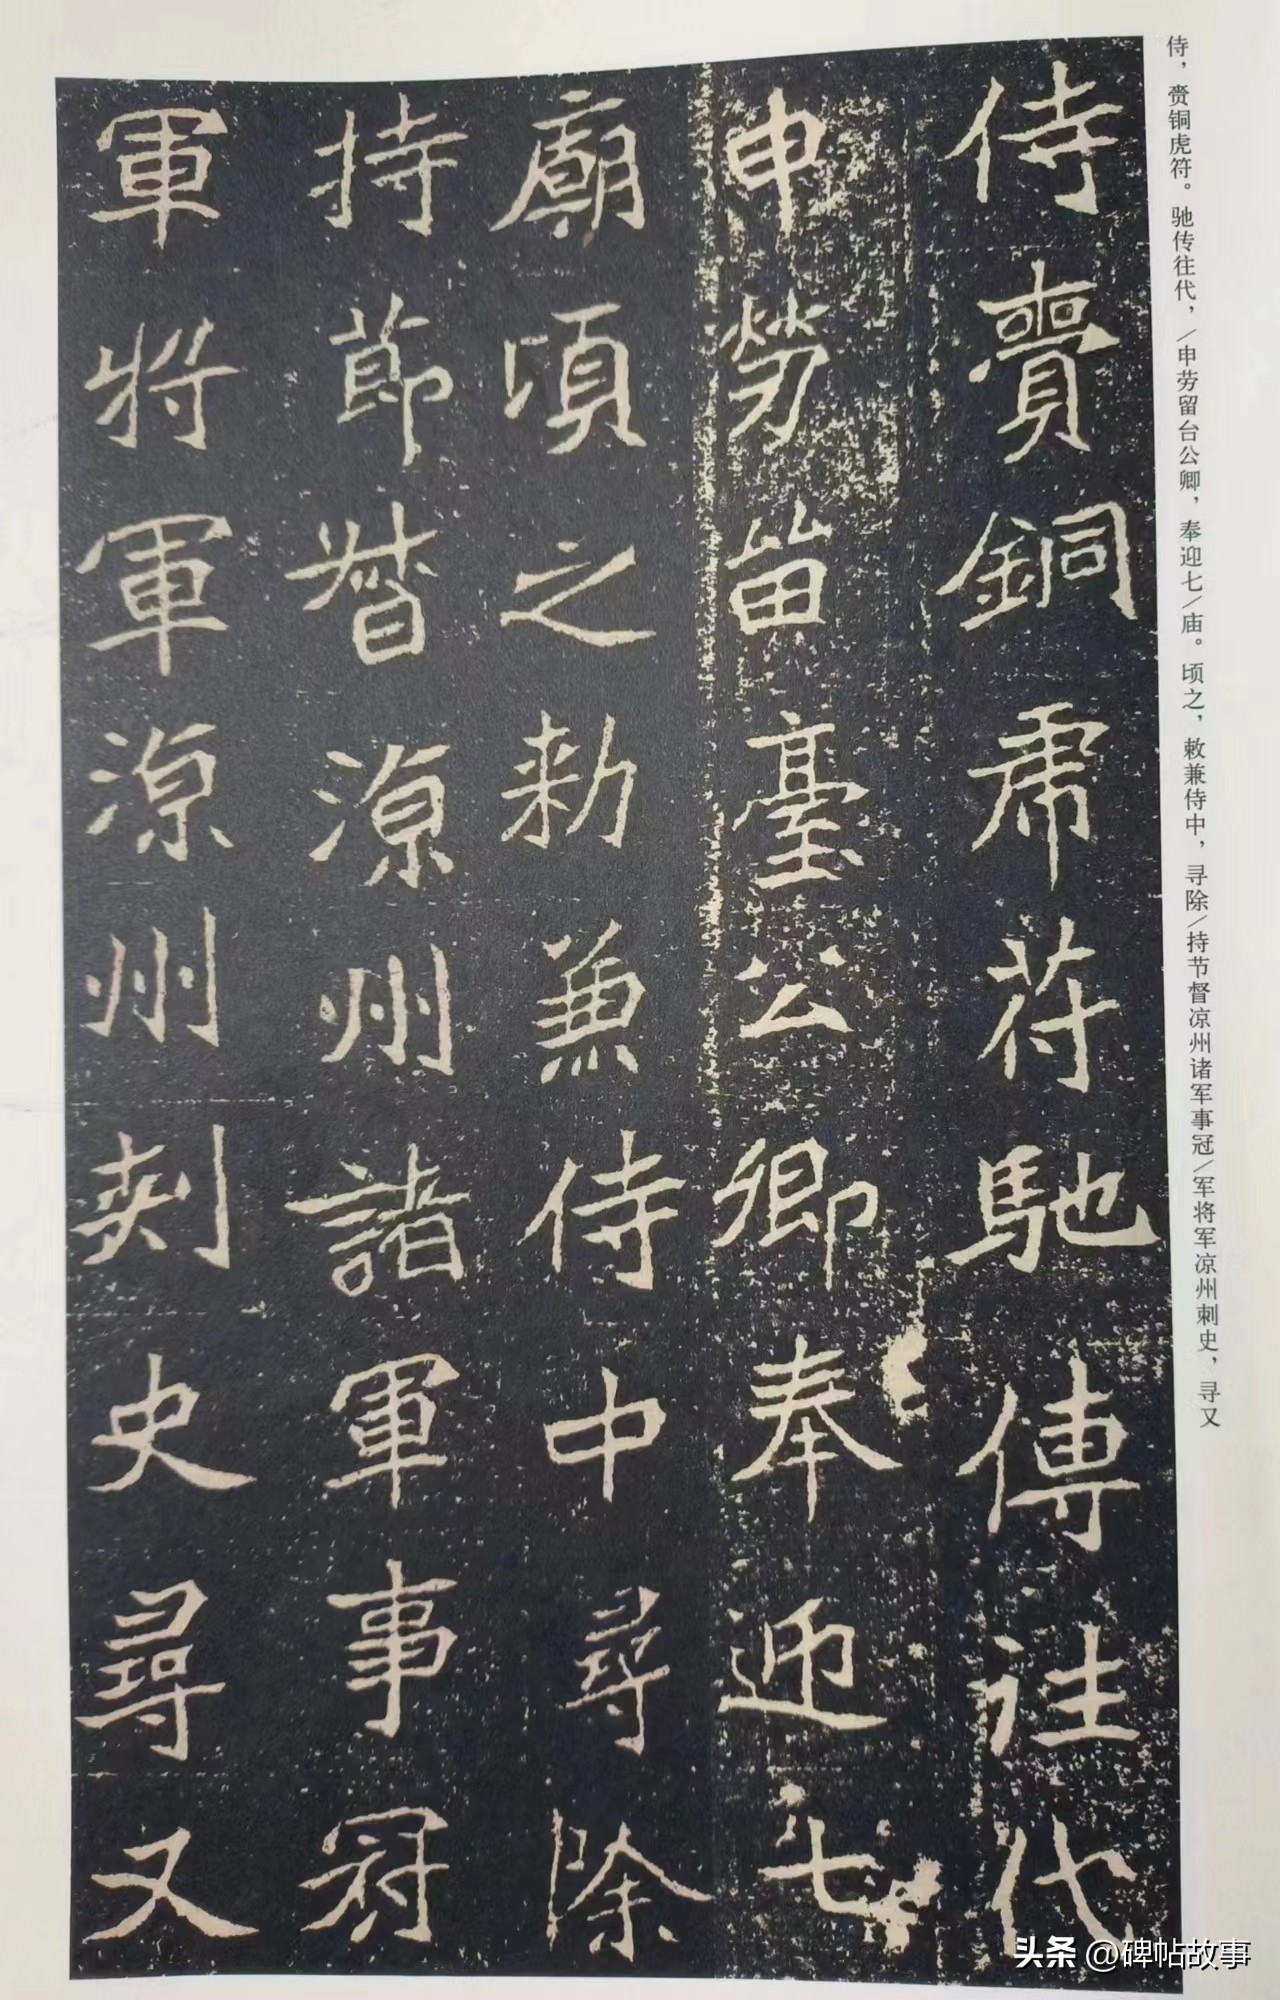 侍賷銅虎符馳傳往代
申勞留臺公卿奉迎七
廟頃之勑兼侍中尋除
持節督涼州諸軍事冠
軍將軍涼州刺史尋又
侍，赍铜虎符。驰传往代，/申劳留台公卿，奉迎七/庙。顷之，敕兼侍中，寻除/持节督凉州诸军事冠/军将军凉州刺史，寻又
头条 @碑帖故事